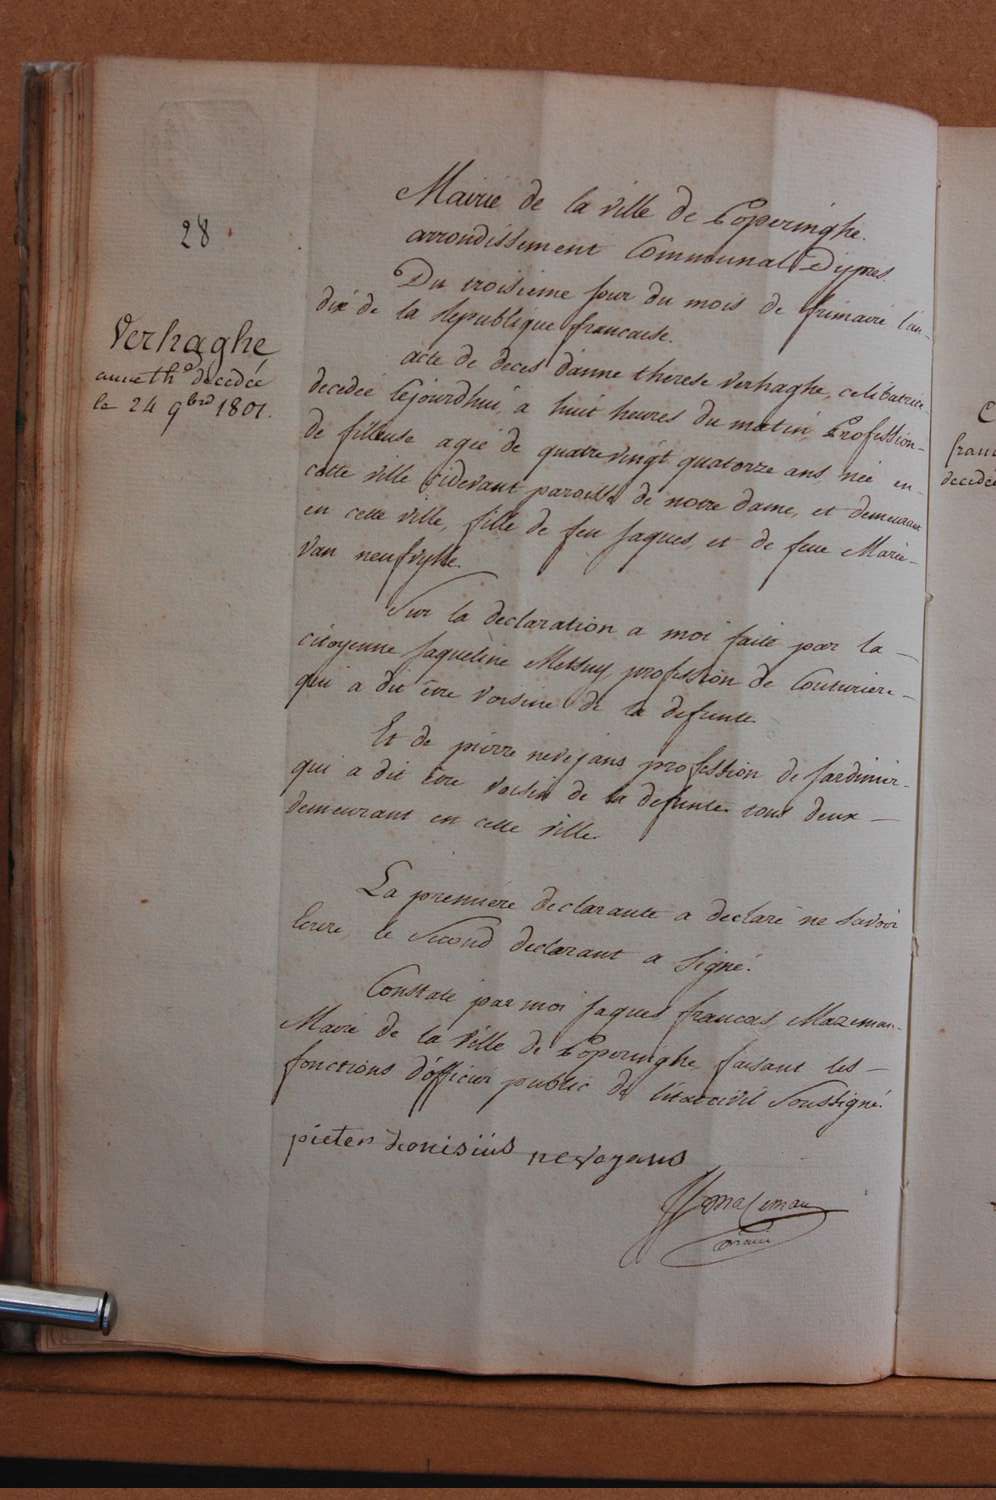 28
Verhaghe
anne th.e decedée
le 24 9bre 1801.
Mairie de la ville de Poperinghe.
arrondissement Communal D'ypres.
Du troisieme jour du mois de frimaire l'an-
dix de la Republique francaise.
acte de deces d'anne therese verhaghe, celibataire
decedée Cejourdhui, a huit heures du matin, Profession-
de fileuse agée de quatre vingt quatorze ans, née en-
cette ville cidevant paroisse de notre dame, et demeurant
en cette ville, fille de feu jaques, et de feue Marie-
van
Sur la declaration a moi faite par la -
citoyenne jaqueline Metsuy, profession de Couturiere-
qui a dit être voisine de la defunte.
Et de pierre nevejans profession de jardinier-
qui a dit être voisin de la defunte tous deux -
demeurant en cette ville.
La premiere declarante a declaré ne savoir
ecrire, le second declarant a signé.
Constaté par moi jaques francois Mazeman-
Maire de la ville de Poperinghe, faisant les -
fonctions d'officier public de l'etat civil soussigné.
pieter dionisiüs nevejans
mazeman
maire
C
fran
decedée